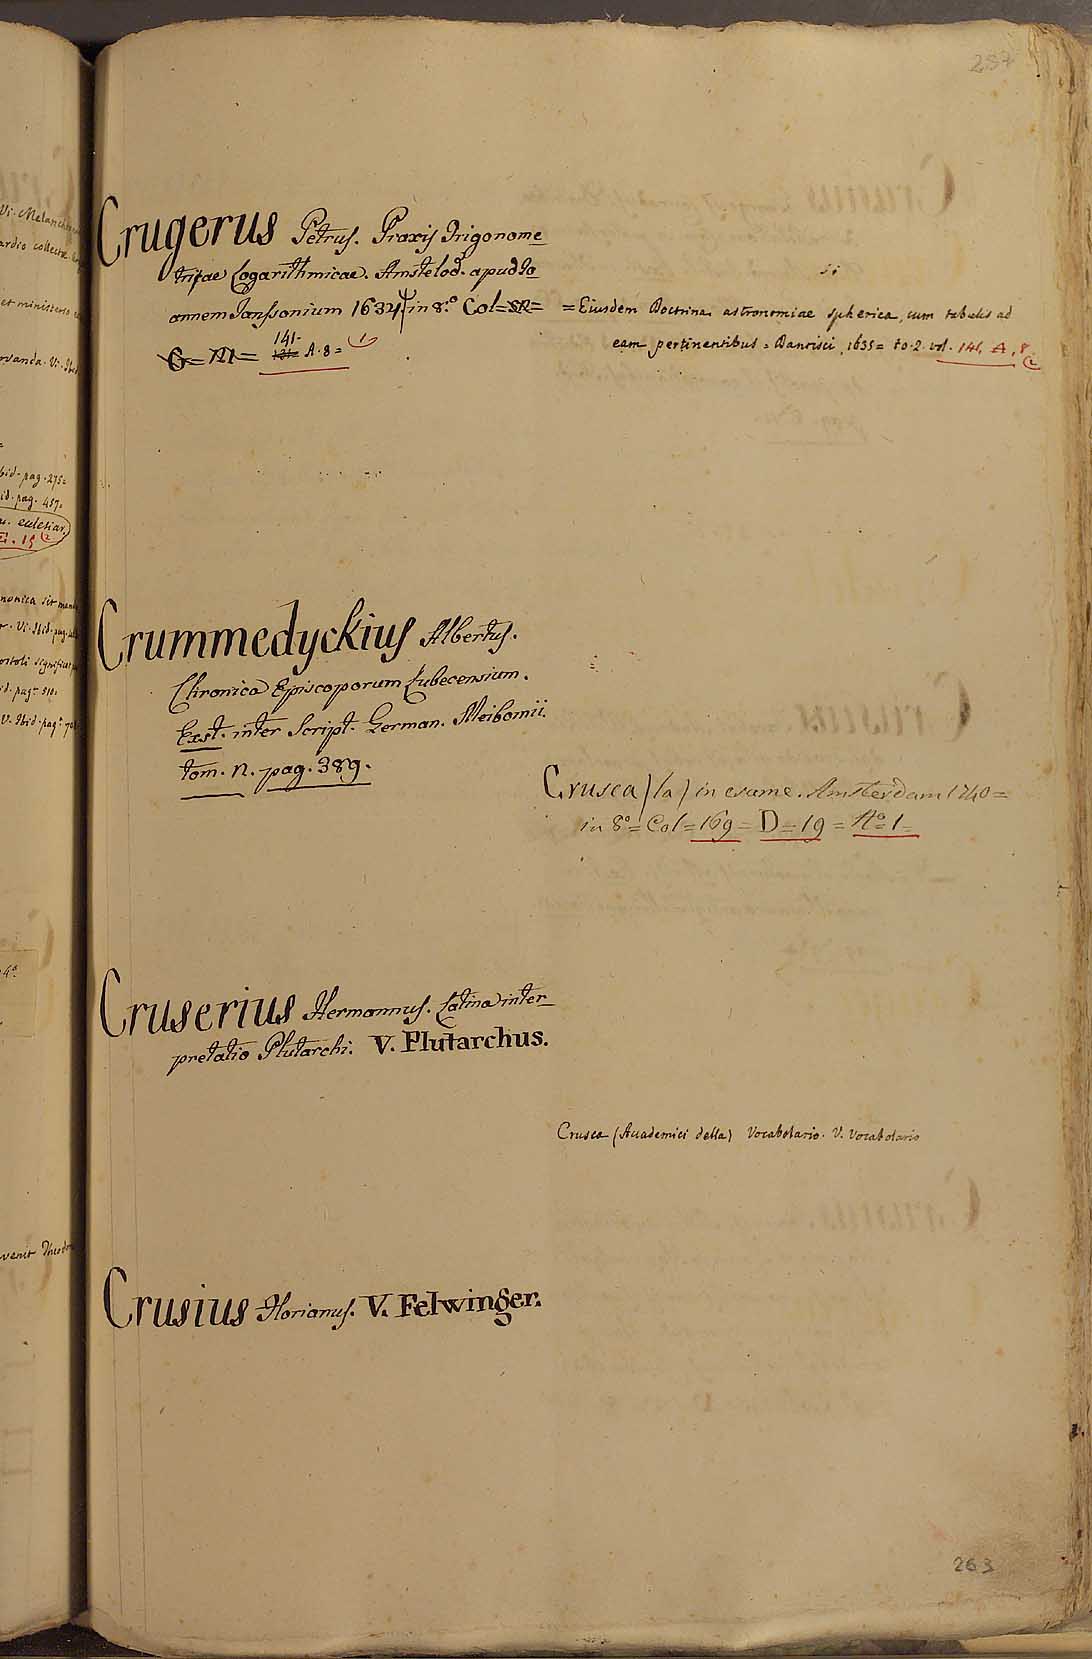 237
Crugerus Petrus. Praxis Trigonome
trijae Logarithmicae. Amstelod. apud Jo
annem Janssonium 1634. in 8.º Col=
= Eiusdem Doctrina astronomiae spherica, cum tabulis ad
eam pertinentibus = Dantisci, 1635 = to. 2. vol. 141. A. 8
141.
A. 8 =
Crummedyckius Albertus.
Chronica Episcoporum Lubecensium.
Exst. inter Script. German. Meibomii.
tom. n. pag. 389.
Crusca (la) in esame. Amsterdam 1740 =
in 8º = Col = 169 = D = 19 = Nº 1 =
Cruserius Hermannus. Latina inter
pretatio Plutarchi. V. Plutarchus.
Crusca (Accademici della) Vocabolario. V. Vocabolario
Crusius Florianus. V. Felwinger.
263
Vi. Melanch
ardio collectae
et ministerio
ibid. pag. 275.
id. pag. 457.